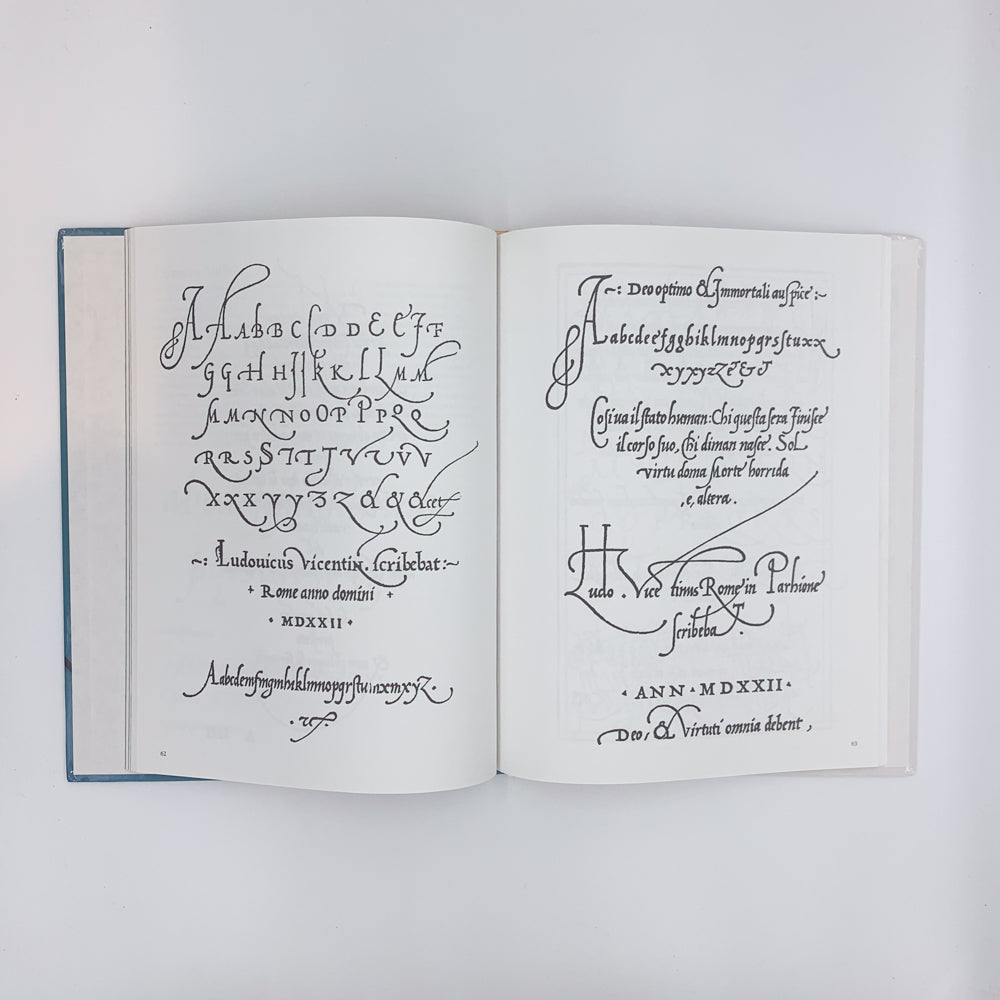 A A A B B C C D D E E F F
G G H H I J K K L L M M
M M N N N O O P P P Q Q
R R S S T T T V V V V
X X X Y Y 3 Z & & & cet
~: Ludouicus Vicentin. scribebat :~
+ Rome anno domini +
· MDXXII ·
62
~: Deo optimo & Immortali auspice :~
A abcdeefgghiklmnopqrsstuxx
xyxyzZ&&
Cosi ua il stato human: Chi questa sera finisce
il corso suo, Chi diman nasce. Sol
virtu doma Morte horrida
, e, altera .
Ludo . Vicentinus Rome in Parhione
scribeba T.
· ANN · MDXXII ·
Deo, & Virtuti omnia debent ,
63